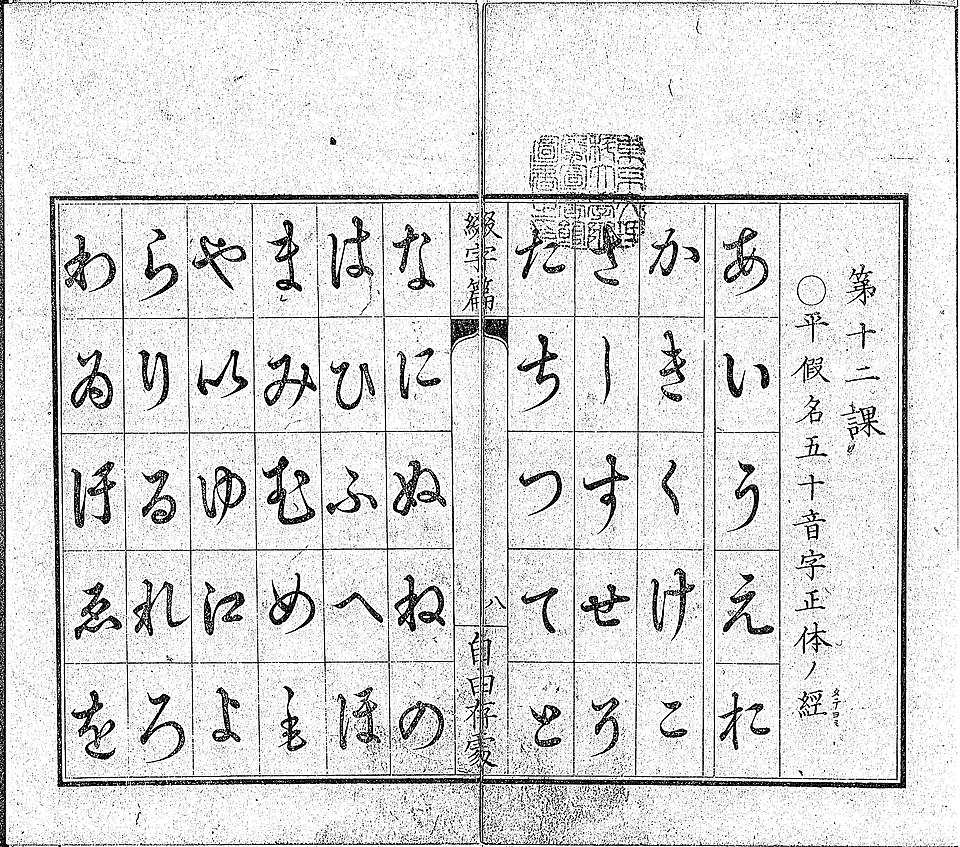 第十二課
〇平假名五十音字正体ノ經
タテヨミ
あいうえお
かきくけこ
さしすせそ
たちつてと
綴字篇
八
なにぬねの
はひふへほ
まみむめも
や𛀆ゆ𛀁よ
らりるれろ
わゐ𛄟ゑを